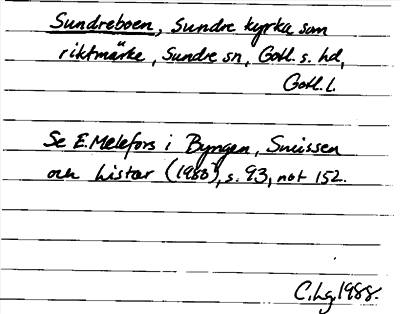 Sundreboen, Sundre kyrka som
riktmärke, Sundre sn, Gotl. s. hd,
Gotl. l.
Se E. Melefors i Byngen, Sneissen
och histar (1980), s. 93, not 152.
C. Lg. 1988.